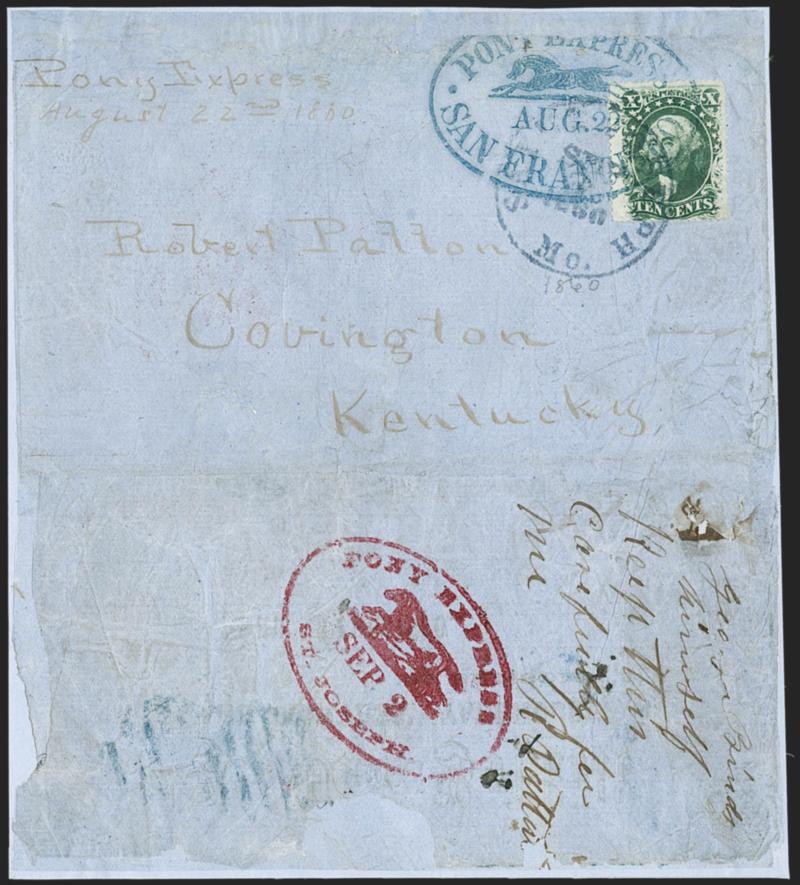 Pony Express
August 22nd 1860
· PONY EXPRES
AUG. 22
SAN FRAN
X U.S. POSTAGE X
TEN CENTS
JOSEPH Mo.
1860
1860
Robert Patton
Covington
Kentucky
PONY EXPRESS
SEP 2
ST. JOSEPH.
himself
Keep this
Carefully for
me R Patton